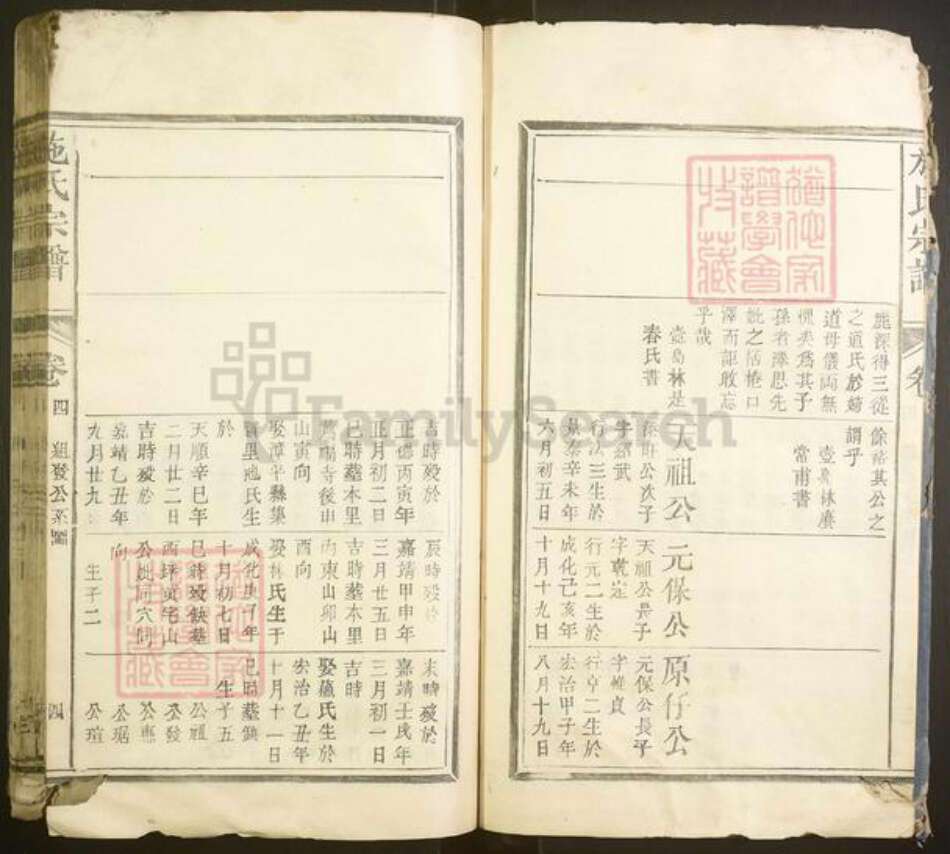 施氏宗譜
麗深得三從
之道氏於婦
道母儀両無
愧矣爲其子
孫者緣思先
妣之活惓口
澤而詎敢忘
乎哉
壺島林是
春氏書
餘裕其公之
謂乎
壺島林賡
常甫書
天祖公
公次子
字紹武
行法三生於
景泰辛未年
六月初五日
元保公
天祖公長子
字乾定
行元二生於
成化己亥年
十月十九日
原仔公
元保公長子
字惟貞
行亨二生於
宏治甲子年
八月十九日
吉時殁於
正德丙寅年
正月初二日
巳時塟本里
寺後山
山寅向
娶潭平縣集
賢里池氏生
於
天順辛巳年
二月廿二日
吉時殁於
嘉靖乙丑年
九月廿九
辰時殁於
嘉靖甲申年
三月廿五日
吉時塟本里
内東山卯山
酉向
娶林氏生于
成化庚子年
十月初七日
巳時殁缺塟
西坪寅宅山
公妣同穴
向
生子二
未時殁於
嘉靖壬戌年
三月初一日
吉時
娶蘓氏生於
宏治乙丑年
十月十一日
巳時塟缺
生子五
公祖
公發
公惠
公琚
公瑄
施氏宗譜
卷
四
祖發公系圖
四
FamilySearch